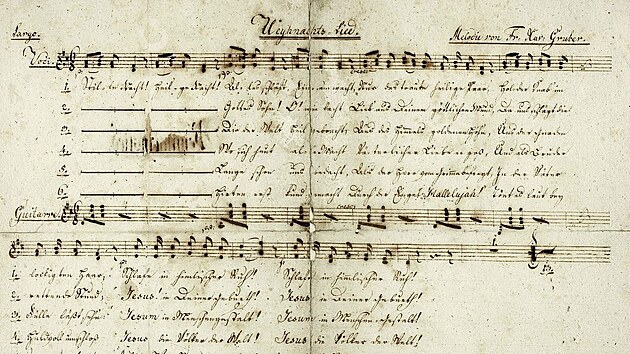 Largo. Weyhnachts-Lied. Melodie von Fr. Xav. Gruber.
Voci.
1. Stille Nacht! Heilige Nacht! Alles schläft, Einsam wacht, Nur das traute heilige Paar, Holder Knab im
2. Gottes Sohn! O! wie lacht Lieb aus Deinem göttlichen Mund, Da uns schlägt die
3. Die der Welt Heil gebracht, Aus des Himmels goldenen Höhn,
4. Wo sich heut alle Macht Väterlicher Liebe ergoß, Und als Bruder
5. Lange schon uns bedacht, Als der Herr vom Grimme befreyt, In der Väter
6. Hirten erst kund gemacht Durch der Engel Hallelujah! Tönt es laut bey
Guitarre.
1. lockigten Haar, Schlafe in himmlischer Ruh! Schlafe in himmlischer Ruh!
2. rettende Stund, Jesus! in Deiner Geburth! Jesus in Deiner Geburth!
3. Fülle läßt sehn: Jesum in Menschengestalt! Jesum in Menschengestalt!
4. Huldvoll umschloß Jesus die Völker der Welt! Jesus die Völker der Welt!